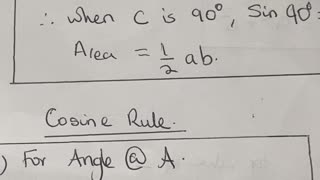 ∴ when C is 90°, Sin 90° =
Area = 1/2 ab.
Cosine Rule.
) For Angle @ A.